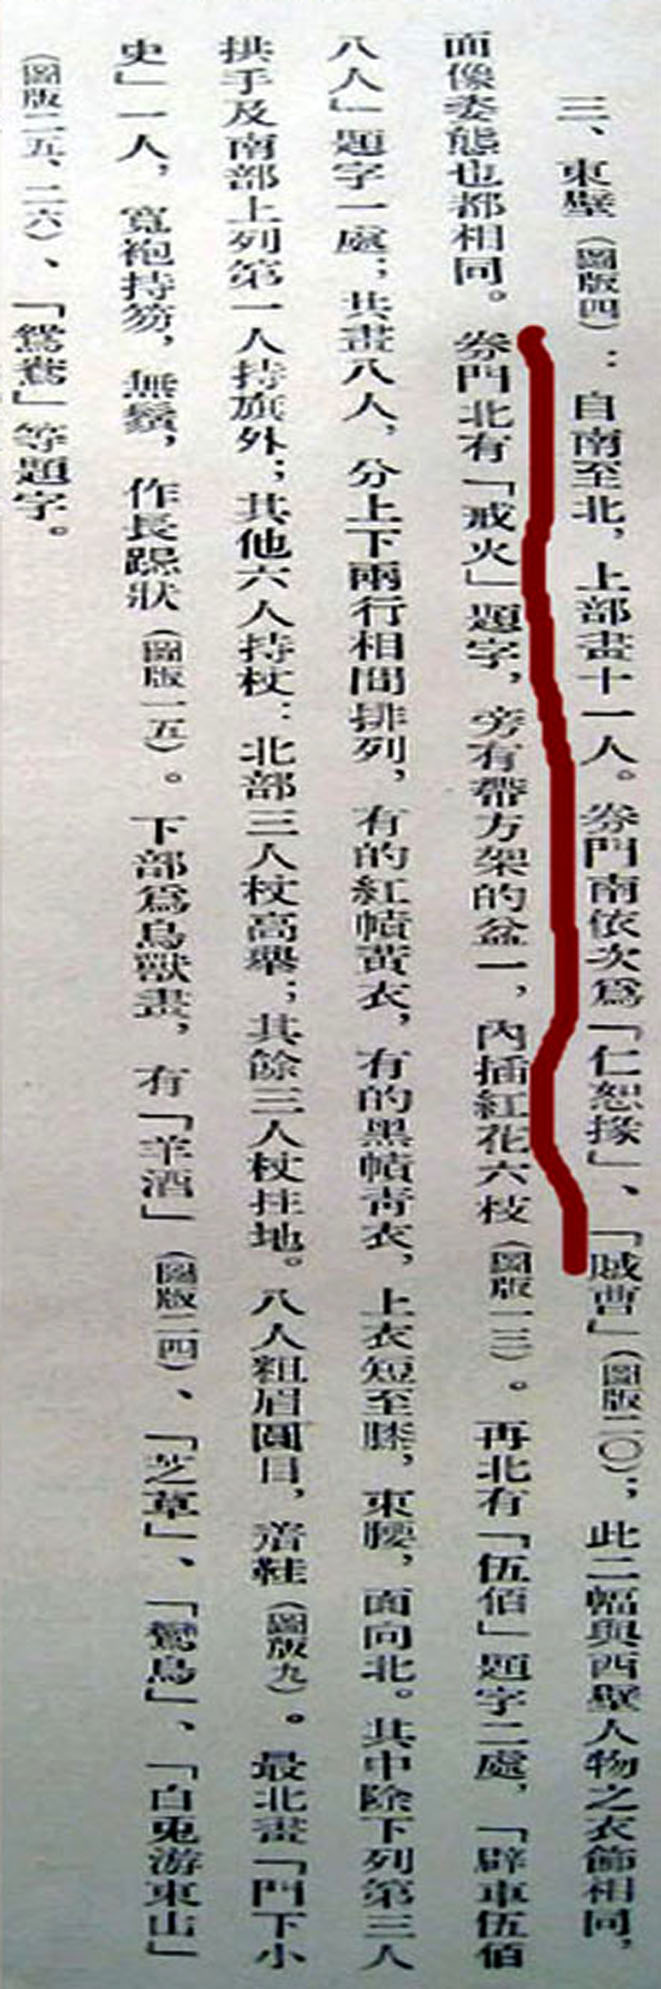 三、東壁（圖版四）：自南至北，上部畫十一人。券門南依次爲「仁恕掾」、「賊曹」（圖版二〇）；此二幅與西壁人物之衣飾相同，
面像姿態也都相同。券門北有「戒火」題字，旁有帶方架的盆一，內插紅花六枝（圖版一三）。再北有「伍佰」題字二處，「辟車伍佰
八人」題字一處；共畫八人，分上下兩行相間排列，有的紅幘黃衣，有的黑幘青衣，上衣短至膝，束腰，面向北。其中除下列第三人
拱手及南部上列第一人持旗外；其他六人持杖：北部三人杖高舉；其餘三人杖拄地。八人粗眉圓目，着鞋（圖版九）。最北畫「門下小
史」一人，寬袍持笏，無鬚，作長跽狀（圖版一五）。下部爲鳥獸畫，有「羊酒」（圖版二四）、「芝草」、「鸞鳥」、「白兎游東山」
（圖版二五、二六）、「鴛鴦」等題字。